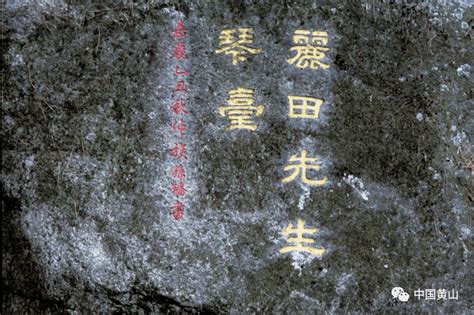 麗田先生
琴臺
嘉慶乙丑秋仲
中国黄山